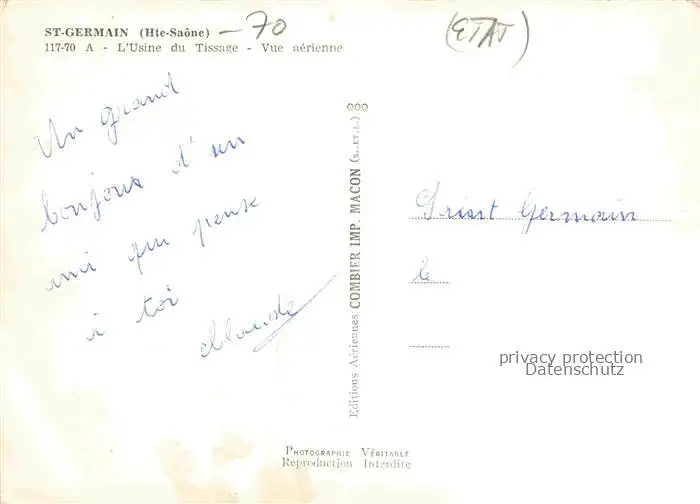 ST-GERMAIN (Hte-Saône) - 70
117-70 A - L'Usine du Tissage - Vue aérienne
(ETAT)
Un grand
bonjour d'un
ami qui pense
à toi
Claude
Editions Aériennes COMBIER IMP. MACON (S.-ET-L.)
Saint Germain
le
privacy protection
Datenschutz
PHOTOGRAPHIE VÉRITABLE
Reproduction Interdite